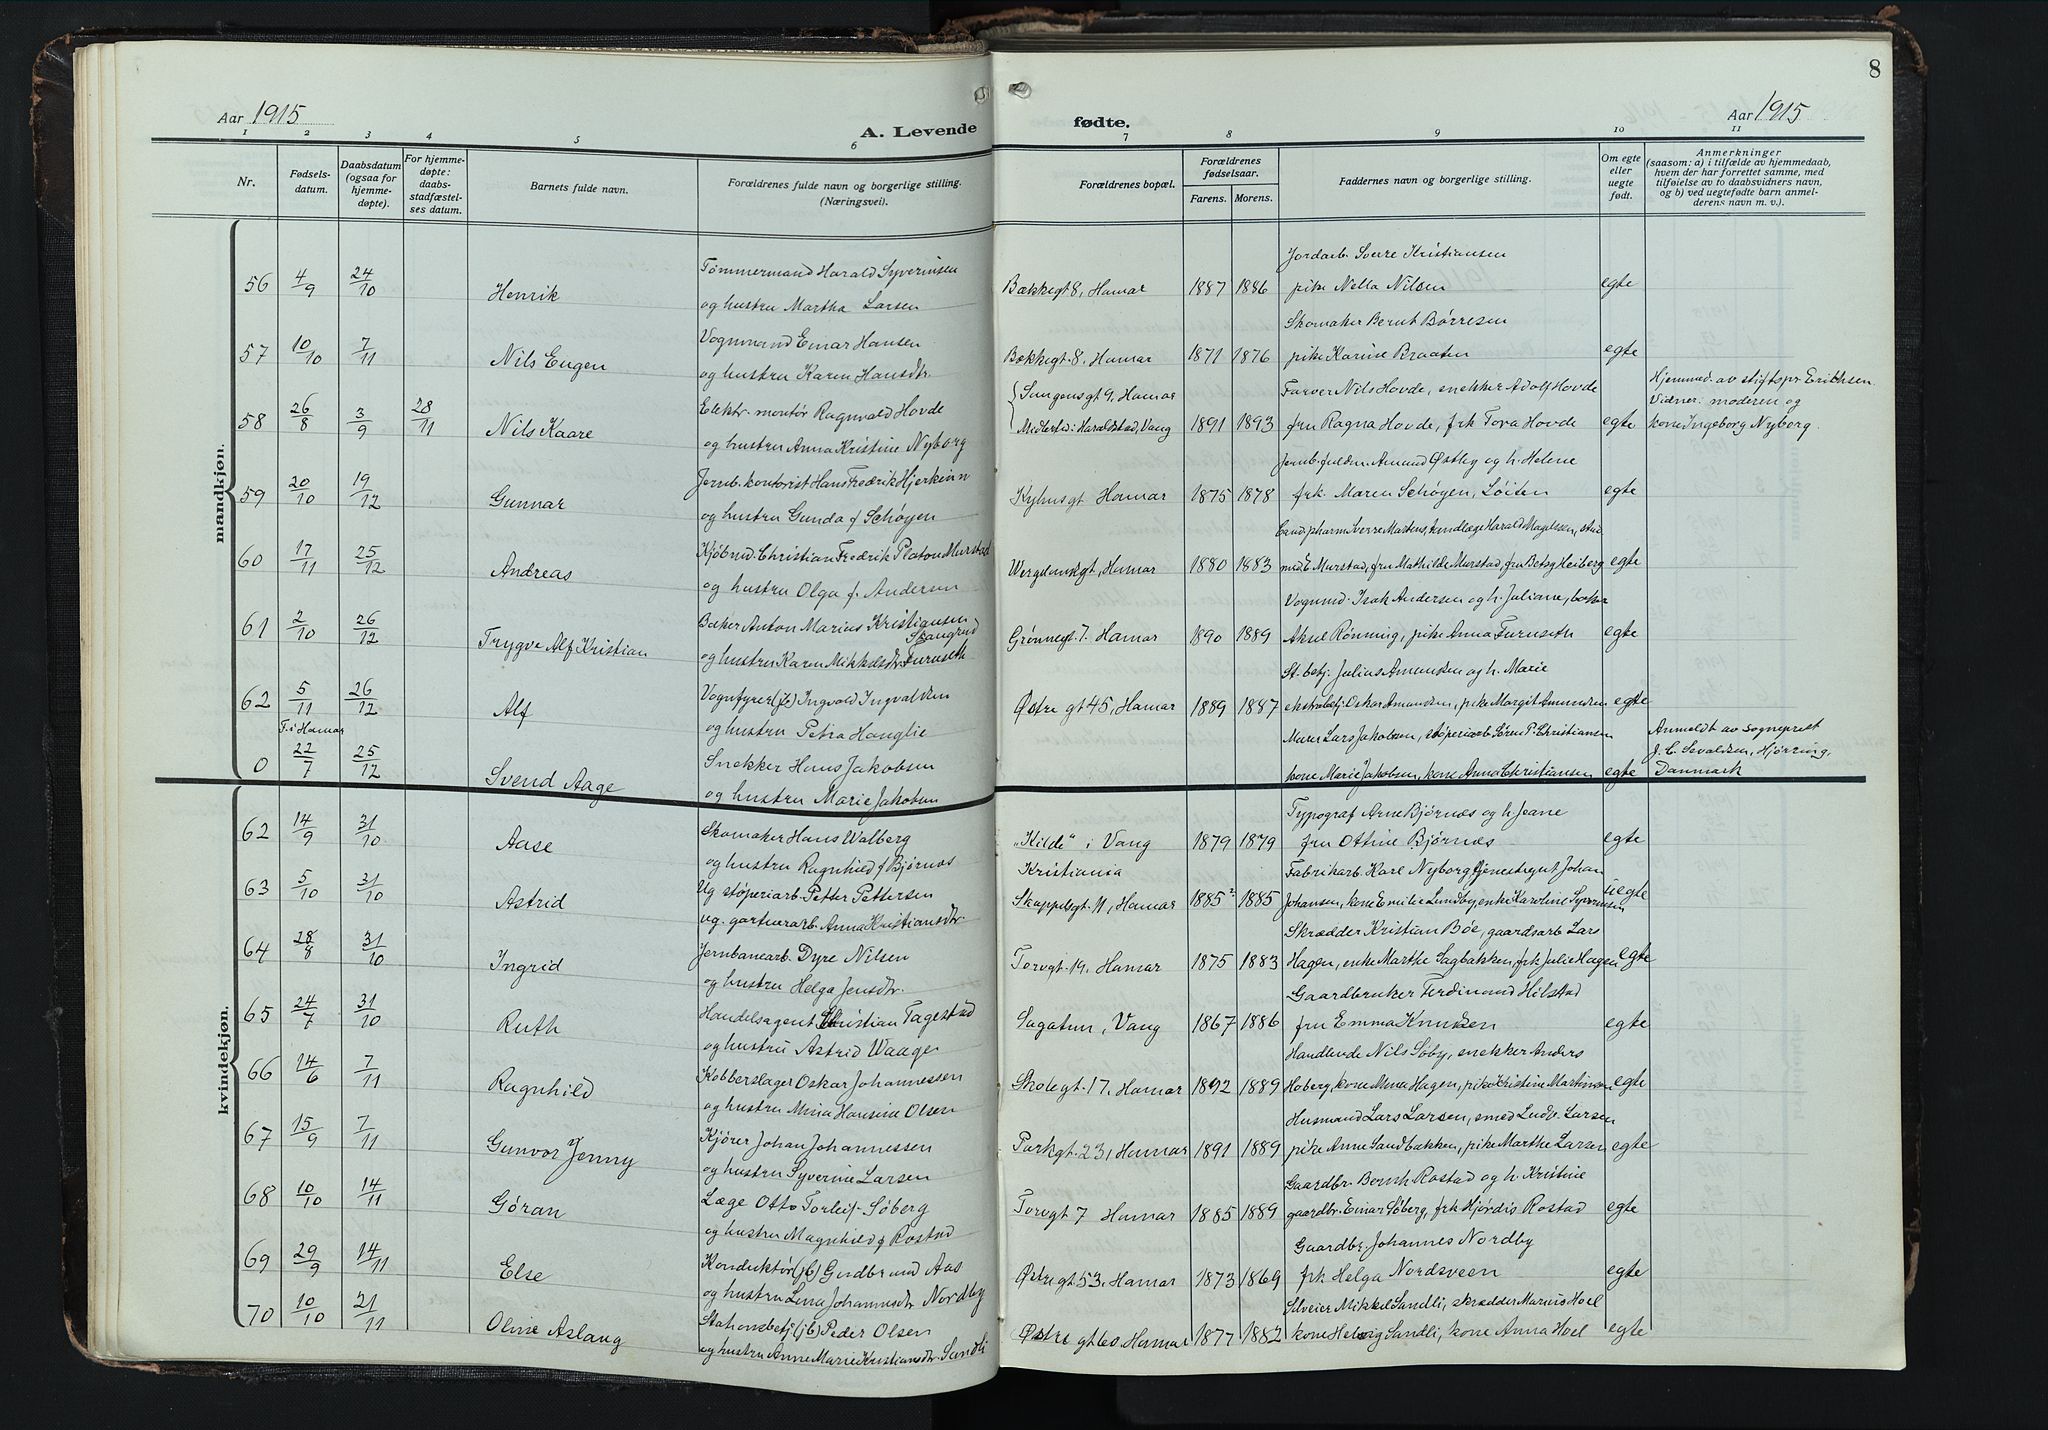 8
Aar 1915
A. Levende
fødte.
Aar 1915
1 2 3 4 5 6 7 8 9 10 11
Nr.
Fødsels-
datum.
Daabsdatum
(ogsaa for
hjemme-
døpte).
For hjemme-
døpte:
daabs-
stadfæstel-
ses datum.
Barnets fulde navn.
Forældrenes fulde navn og borgerlige stilling.
(Næringsvei).
Forældrenes bopæl.
Forældrenes
fødselsaar.
Farens. Morens.
Faddernes navn og borgerlige stilling.
Om egte
eller
uegte
født.
Anmerkninger
(saasom: a) i tilfælde av hjemmedaab,
hvem der har forrettet samme, med
tilføielse av to daabsvidners navn,
og b) ved uegtefødte barn anmel-
derens navn m. v.).
mandkjøn.
Tømmermand Harald Syverinsen Jordarb. Sverre Kristiansen
56 4/9 24/10 Henrik og hustru Martha Larsen Bækkegt 8, Hamar 1887 1886 pike Nella Nilsen egte
Vognmand Einar Hansen Skomaker Bernt Børresen
57 10/10 7/11 Nils Eugen og hustru Karen Hansdtr Bækkegt. 8, Hamar 1871 1876 pike Karine Braaten egte
Elektr. montør Ragnvald Hovde Sangensgt 9, Hamar Farver Nils Hovde, snekker Adolf Hovde Hjemmed. av stiftspr Erichsen.
Vidner: moderen og
58 26/8 3/9 28/11 Nils Kaare og hustru Anna Kristine Nyborg Midlertid: Haraldstad, Vang 1891 1893 fru Ragna Hovde, frk Tora Hovde egte kone Ingeborg Nyborg.
Jernb. kontorist Hans Fredrik Hjerkinn Jernb. fuldm. Amund Østby og h. Helene
59 20/10 19/12 Gunnar og hustru Gunda f. Schøyen Kyhnsgt Hamar 1875 1878 frk. Maren Schøyen, Løiten egte
Kjøbmd. Christian Fredrik Platou Murstad Cand. pharm Sverre Martens, tandlæge Harald Magelssen, stud
60 17/11 25/12 Andreas og hustru Olga f. Andersen Wergelandsgt, Hamar 1880 1883 med E. Murstad, fru Mathilde Murstad, fru Betsy Heiberg egte
Baker Anton Marius Kristiansen Skaugrud Vognmd. Isak Andersen og h. Juliane, baker
61 2/10 26/12 Trygve Alf Kristian og hustru Karen Mikkelsdtr Furuseth Grønnegt. 7. Hamar 1890 1889 Aksel Rønning, pike Anna Furuseth egte
Vognfyrer (jb) Ingvald Ingvaldsen St. betj. Julius Amundsen og h. Marie
62 5/11 26/12 Alf og hustru Petra Hauglie Østre gt 45, Hamar 1889 1887 ekstrabetj Oskar Amundsen, pike Margit Amundsen egte
F. i Hamar
Snekker Hans Jakobsen Murer Lars Jakobsen, støperiarb Søren P. Christiansen Anmeldt av sogneprest
J. C. Sevaldsen, Hjørring,
0 22/7 25/12 Svend Aage og hustru Marie Jakobsen kone Marie Jakobsen, kone Anna Christiansen egte Danmark
kvindekjøn.
Skomaker Hans Walberg Typograf Arne Bjørnæs og h. Jeane
62 14/9 31/10 Aase og hustru Ragnhild f Bjørnæs "Kilde" i Vang 1879 1879 fru Ottine Bjørnæs egte
Ug støperiarb. Petter Pettersen Kristiania Fabrikarb. Karl Nyborg tjenestegut Johan
63 5/10 31/10 Astrid ug. gartnerarb. Anna Kristiansdtr. Skappelsgt. 11, Hamar 1885? 1885 Johansen, kone Emilie Lundby, enke Karoline Syversen uegte
Jernbanearb. Dyre Nilsen Skrædder Kristian Bøe, gaardsarb Lars
64 28/8 31/10 Ingrid og hustru Helga Jensdtr. Torvgt. 19. Hamar 1875 1883 Hagen, enke Marthe Sagbakken, frk Julie Hagen egte
Handelsagent Christian Fagestad Gaardbruker Ferdinand Hilstad
65 24/7 31/10 Ruth og hustru Astrid Waage Sagatun, Vang 1867 1886 fru Emma Knudsen egte
Kobberslager Oskar Johannessen Handlende Nils Søby, snekker Anders
66 14/6 7/11 Ragnhild og hustru Mina Hansine Olsen Skolegt. 17. Hamar 1892 1889 Hoberg, kone Mina Hagen, pike Kristine Martinsen egte
Kjører Johan Johannessen Husmand Lars Larsen, smed Ludv. Larsen
67 15/9 7/11 Gunvor Jenny og hustru Syverine Larsen Parkgt. 23, Hamar 1891 1889 pike Anne Sandbakken, pike Marthe Larsen egte
Læge Otto Torleif Søberg Gaardbr. Bernh Rostad og h. Kristine
68 10/10 14/11 Gøran og hustru Magnhild f Rostad Torvgt 7 Hamar 1885 1889 gaardbr. Einar Søberg, frk Hjørdis Rostad egte
Konduktør (jb) Gudbrand Aas Gaardbr, Johannes Nordby
69 29/9 14/11 Else og hustru Lena Johannesdtr Nordby Østregt 53, Hamar 1873 1869 frk Helga Nordsveen egte
Stationsbetj (jb) Peder Olsen Sliveier Mikkel Sandli, skrædder Marius Hoel
70 10/10 21/11 Oline Aslaug og hustru Anne Marie Kristiansdtr. Sandli Østre gt 60 Hamar 1877 1882 kone Helvig Sandli, kone Anna Hoel egte